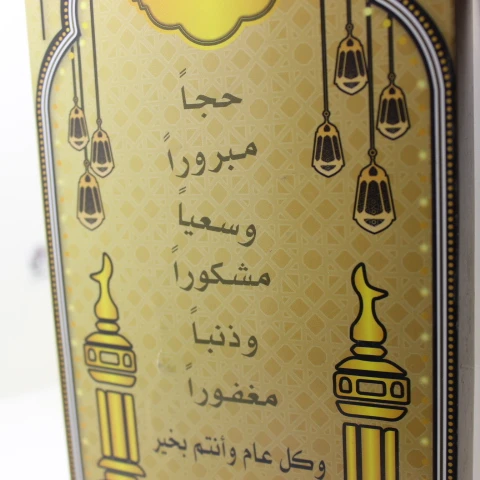 حجاً
مبروراً
وسعياً
مشكوراً
وذنباً
مغفوراً
وكل عام وأنتم بخير